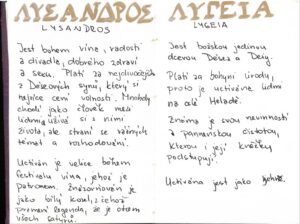 ΛΥΣΑΝΔΡΟΣ
LYSANDROS
Jest bohem vína, radosti
a divadla, dobrého zdraví
a sexu. Platí za nejdivočejších
z Diových synů, který si
nejvíce cení volnosti. Mnohdy
chodí jako člověk mezi
lidmi a užívá si s nimi
života, ale straní se vážných
témat a rozhodování.
Uctíván je velice během
festivalu vína, jehož je
patronem. Znázorňován je
jako bílý kozel, z čehož
pramení legenda, že je otcem
všech satyrů.
ΛΥΓΕΙΑ
LYGEIA
Jest božskou jedinou
dcerou Désea a Deiy.
Platí za bohyni úrody,
proto je uctívána lidmi
na celé Heladě.
Známa je svou nevinností
a panenskou čistotou,
kterou i její kněžky
podstupují.
Uctívána jest jako